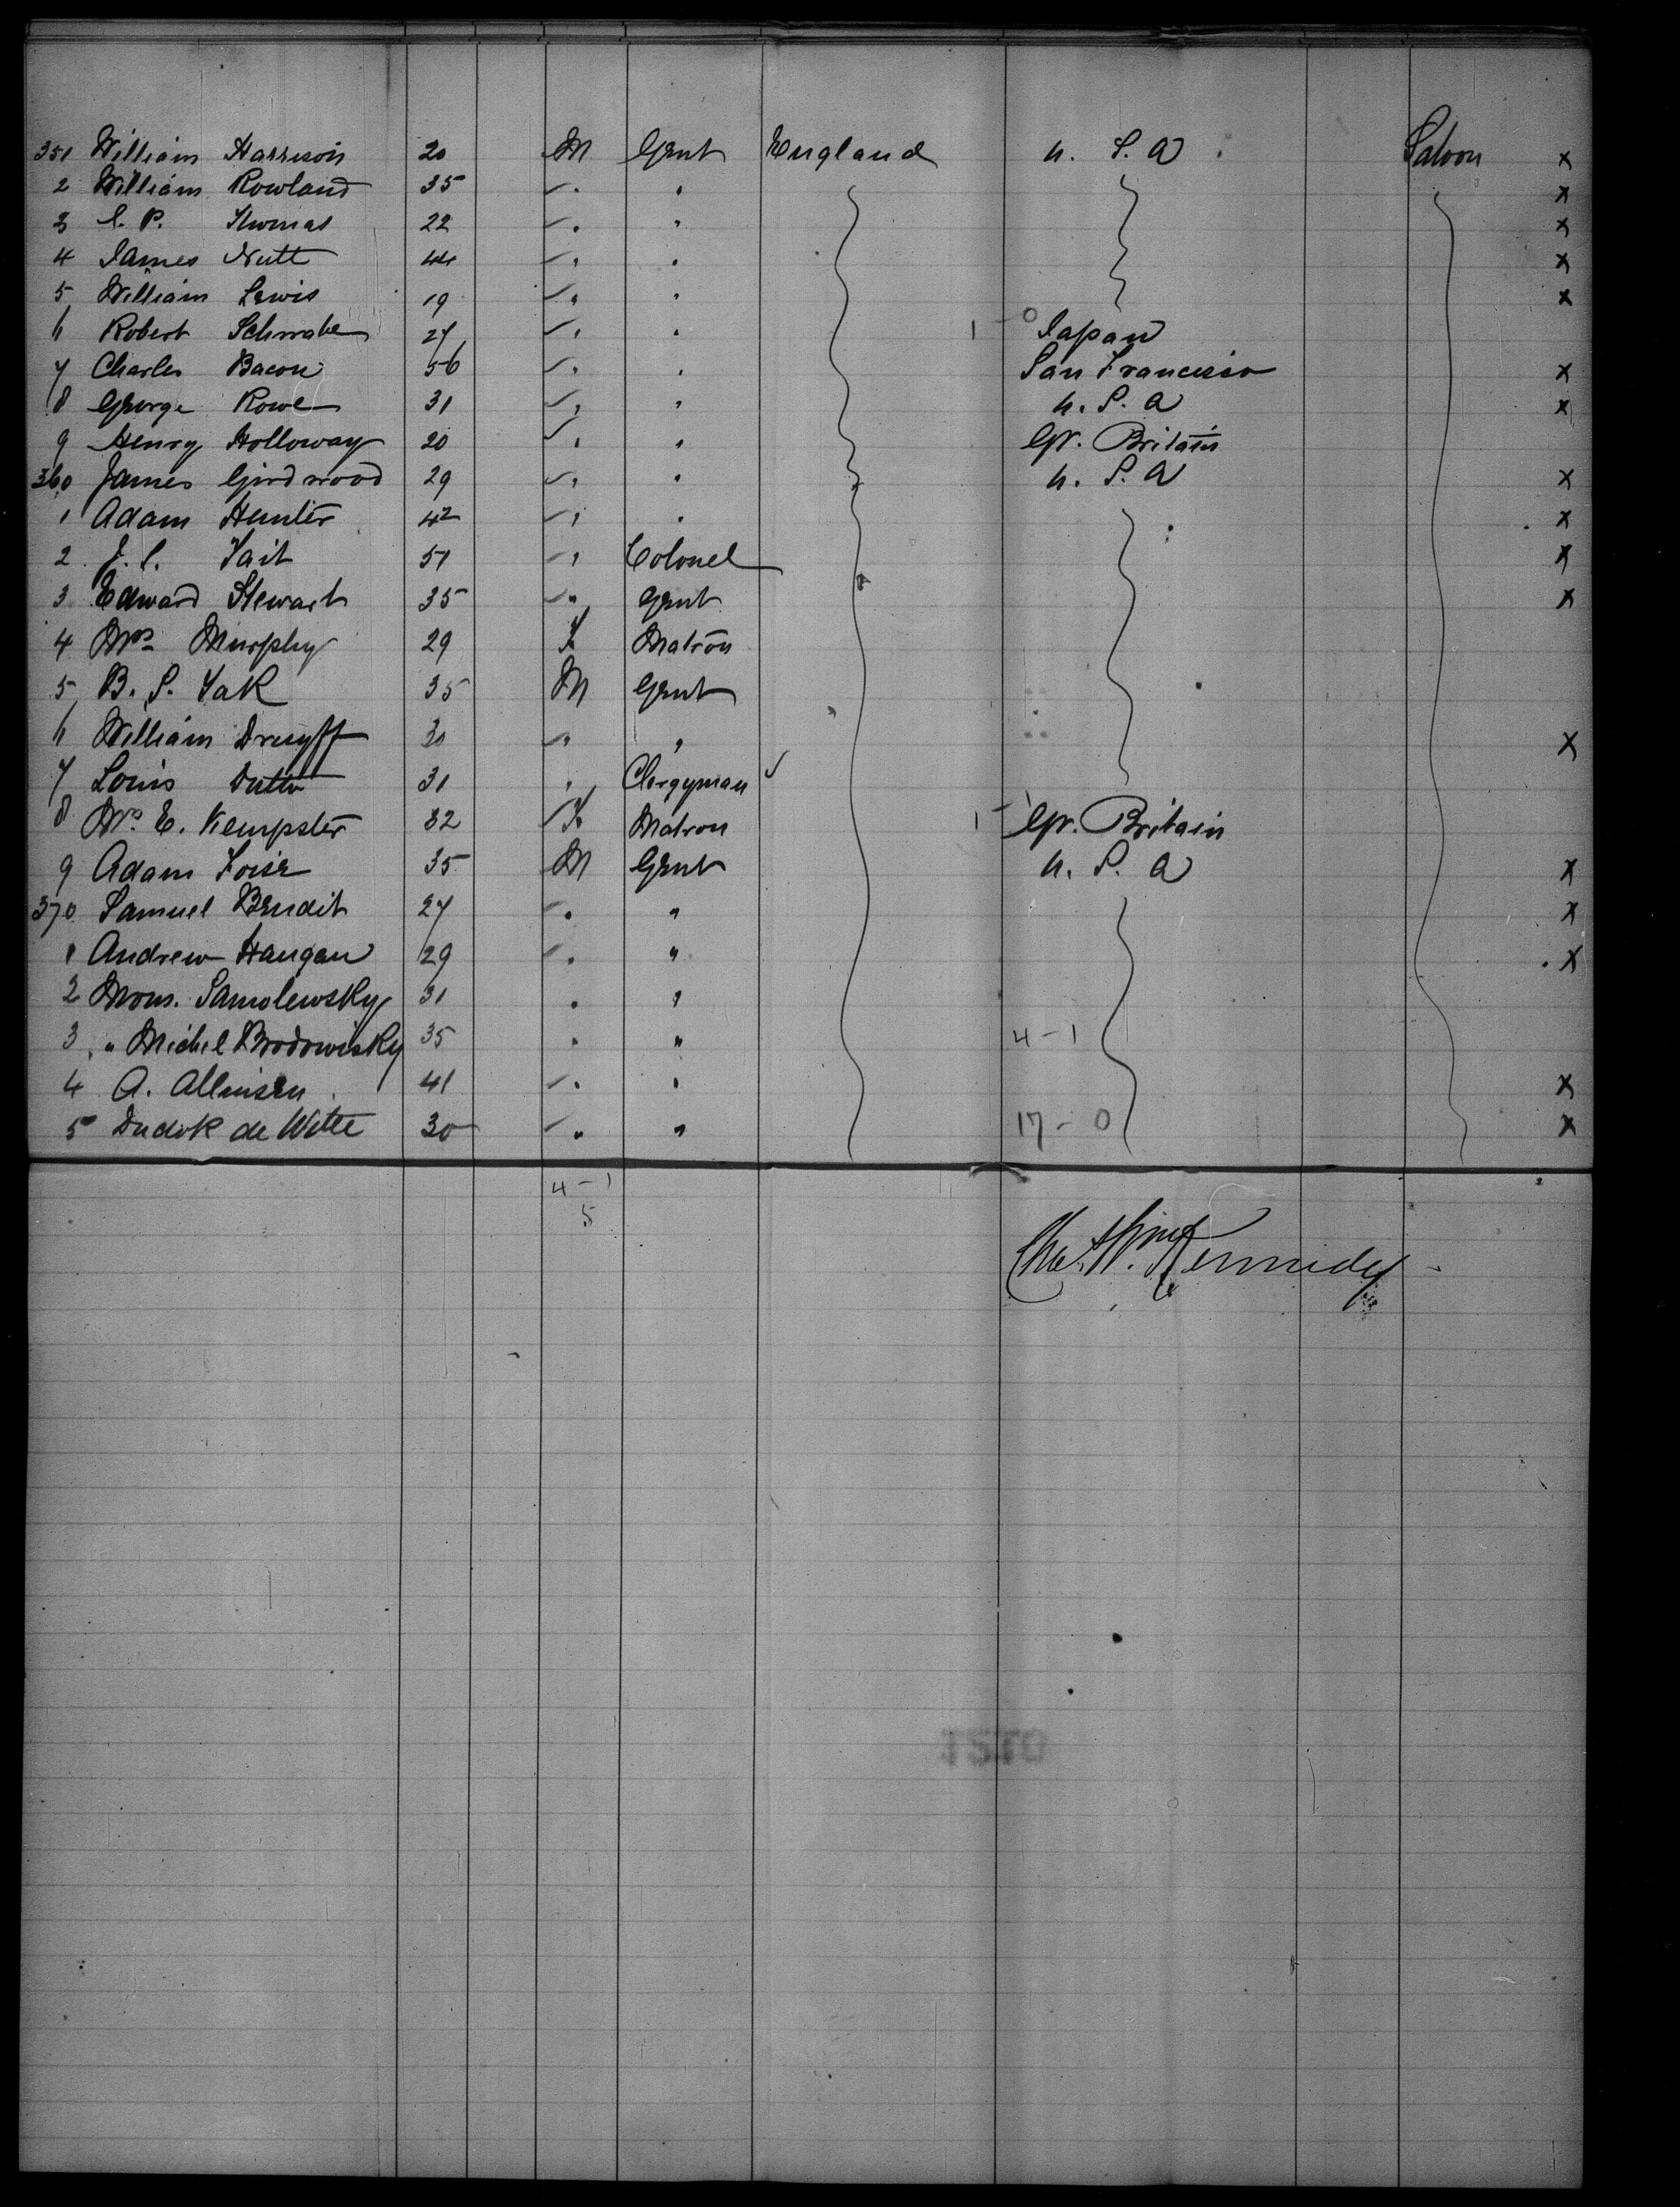 351 William Harrison 20 M Gent England U. S. A Saloon x
2 William Rowland 35 " " x
3 C. P. Thomas 22 " " x
4 James Nutt 44 " " x
5 William Lewis 19 " " x
6 Robert Schwabe 27 " " 1 - 0 Japan
7 Charles Bacon 56 " " San Francisco x
8 George Rowe 31 " " U. S. A x
9 Henry Holloway 20 " " Gr. Britain
360 James Girdwood 29 " " U. S. A x
1 Adam Hunter 42 " " x
2 J. C. Tait 51 " Colonel x
3 Edward Stewart 35 " Gent x
4 Mrs Murphy 29 F Matron
5 B. S. Tak 35 M Gent
6 William Druyff 30 " " x
7 Louis 31 " Clergyman
8 Mrs. E. Kempster 32 F Matron 1 - 1 Gr. Britain
9 Adam 35 M Gent U. S. A x
370 Samuel Bendit 27 " " x
1 Andrew Haugan 29 " " x
2 Mons. Samolewsky 31 " "
3 " Michel Brodowisky 35 " " 4 - 1
4 A. 41 " " x
5 Dudok de Witte 30 " " 17 - 0 x
4 - 1
5
Kennedy